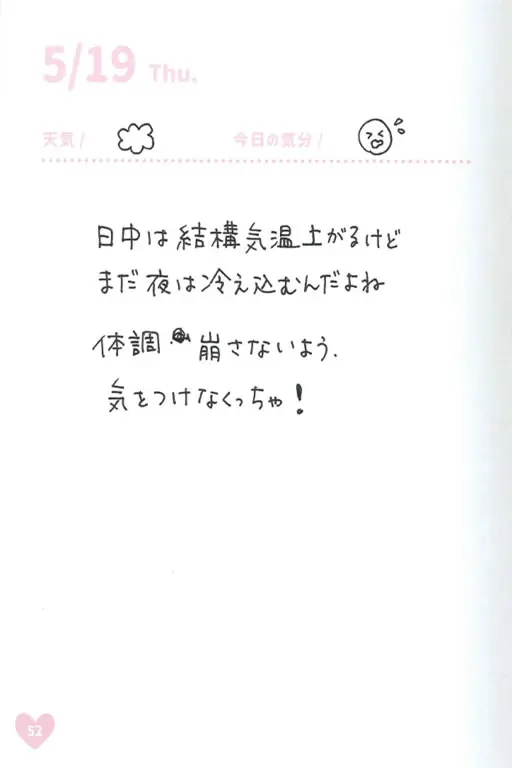 5/19 Thu.
天気/ 今日の気分/
日中は結構気温上がるけど
まだ夜は冷え込むんだよね
体調 崩さないよう.
気をつけなくっちゃ!
52